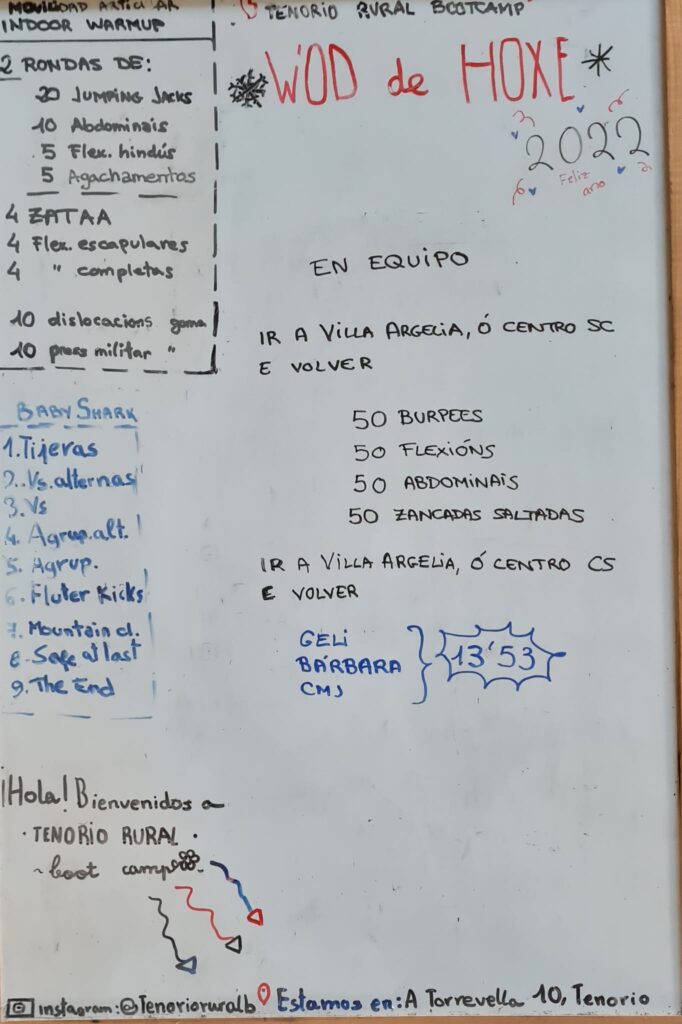 MOVILIDAD ARTICULAR
INDOOR WARMUP
2 RONDAS DE:
20 JUMPING JACKS
10 Abdominais
5 Flex. hindús
5 Agachamentos
4 ZATAA
4 Flex. escapulares
4 " completas
10 dislocacions goma
10 press militar "
BABY SHARK
1. Tijeras
2. Vs. alternas
3. Vs
4. Agrup. alt.
5. Agrup.
6. Fluter Kicks
7. Mountain cl.
8. Safe at last
9. The End
¡Hola! Bienvenidos a
· TENORIO RURAL ·
~ boot camp
TENORIO RURAL BOOTCAMP
WOD de HOXE
2022
Feliz
ano
EN EQUIPO
IR A VILLA ARGELIA, Ó CENTRO SC
E VOLVER
50 BURPEES
50 FLEXIÓNS
50 ABDOMINAIS
50 ZANCADAS SALTADAS
IR A VILLA ARGELIA, Ó CENTRO CS
E VOLVER
GELI
BÁRBARA
CMJ
13'53
instagram: @Tenorioruralb Estamos en: A Torrevella 10, Tenorio